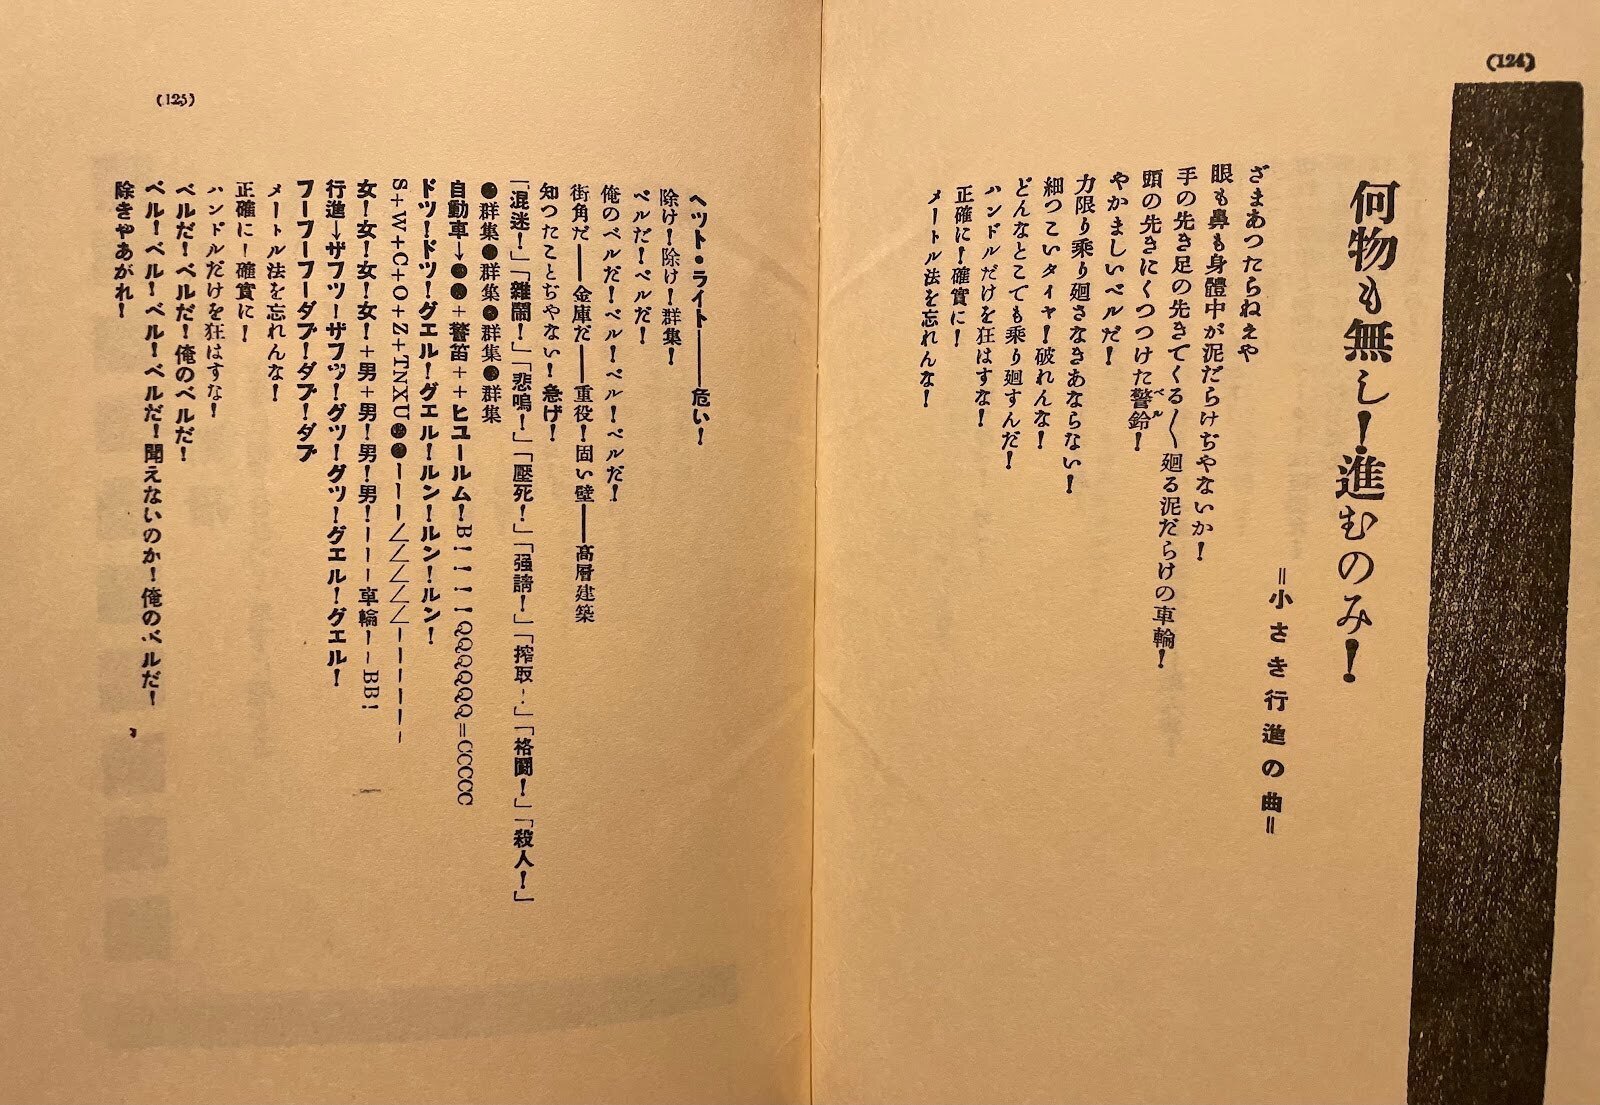 (124)
何物も無し！進むのみ！
＝小さき行進の曲＝
ざまあつたらねえや
眼も鼻も身體中が泥だらけぢやないか！
手の先き足の先きてくる〱廻る泥だらけの車輪！
頭の先きにくつつけた警鈴ベル！
やかましいベルだ！
力限り乘り廻さなきあならない！
細つこいタイヤ！破れんな！
どんなとこでも乘り廻すんだ！
ハンドルだけを狂はすな！
正確に！確實に！
メートル法を忘れんな！
ヘツト・ライト――危い！
除け！除け！群集！
ベルだ！ベルだ！
俺のベルだ！ベル！ベル！ベルだ！
街角だ――金庫だ――重役！固い壁――高層建築
知つたことぢやない！急げ！
「混迷！」「雜鬧！」「悲鳴！」「壓死！」「强請！」「搾取！」「格鬪！」「殺人！」
●群集●群集●群集●群集
自動車→●●＋警笛＋＋ヒユールム！B！！！！QQQQQQ＝CCCCC
ドツ！ドツ！グエル！グエル！ルン！ルンルン！
S＋W＋C＋O＋Z＋TNXU●●ーーー╱╱╱╱╱ーーーーー
女！女！女！女！＋男＋男！男！男！ーーー車輪ーーBB！
行進→ザフツ！ザフツ！グツ！グツ！グエル！グエル！
フーフーフーダブ！ダブ！ダブ
メートル法を忘れんな！
正確に！確實に！
ハンドルだけを狂はすな！
ベルだ！ベルだ！俺のベルだ！
ベル！ベル！ベル！ベルだ！聞えないのか！俺のベルだ！
除きやあがれ！
(125)